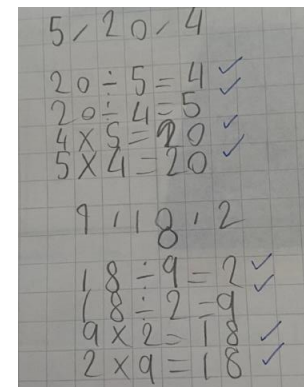 5, 20, 4
20 ÷ 5 = 4 ✓
20 ÷ 4 = 5 ✓
4 × 5 = 20 ✓
5 × 4 = 20 ✓
9, 18, 2
18 ÷ 9 = 2 ✓
18 ÷ 2 = 9 ✓
9 × 2 = 18 ✓
2 × 9 = 18 ✓